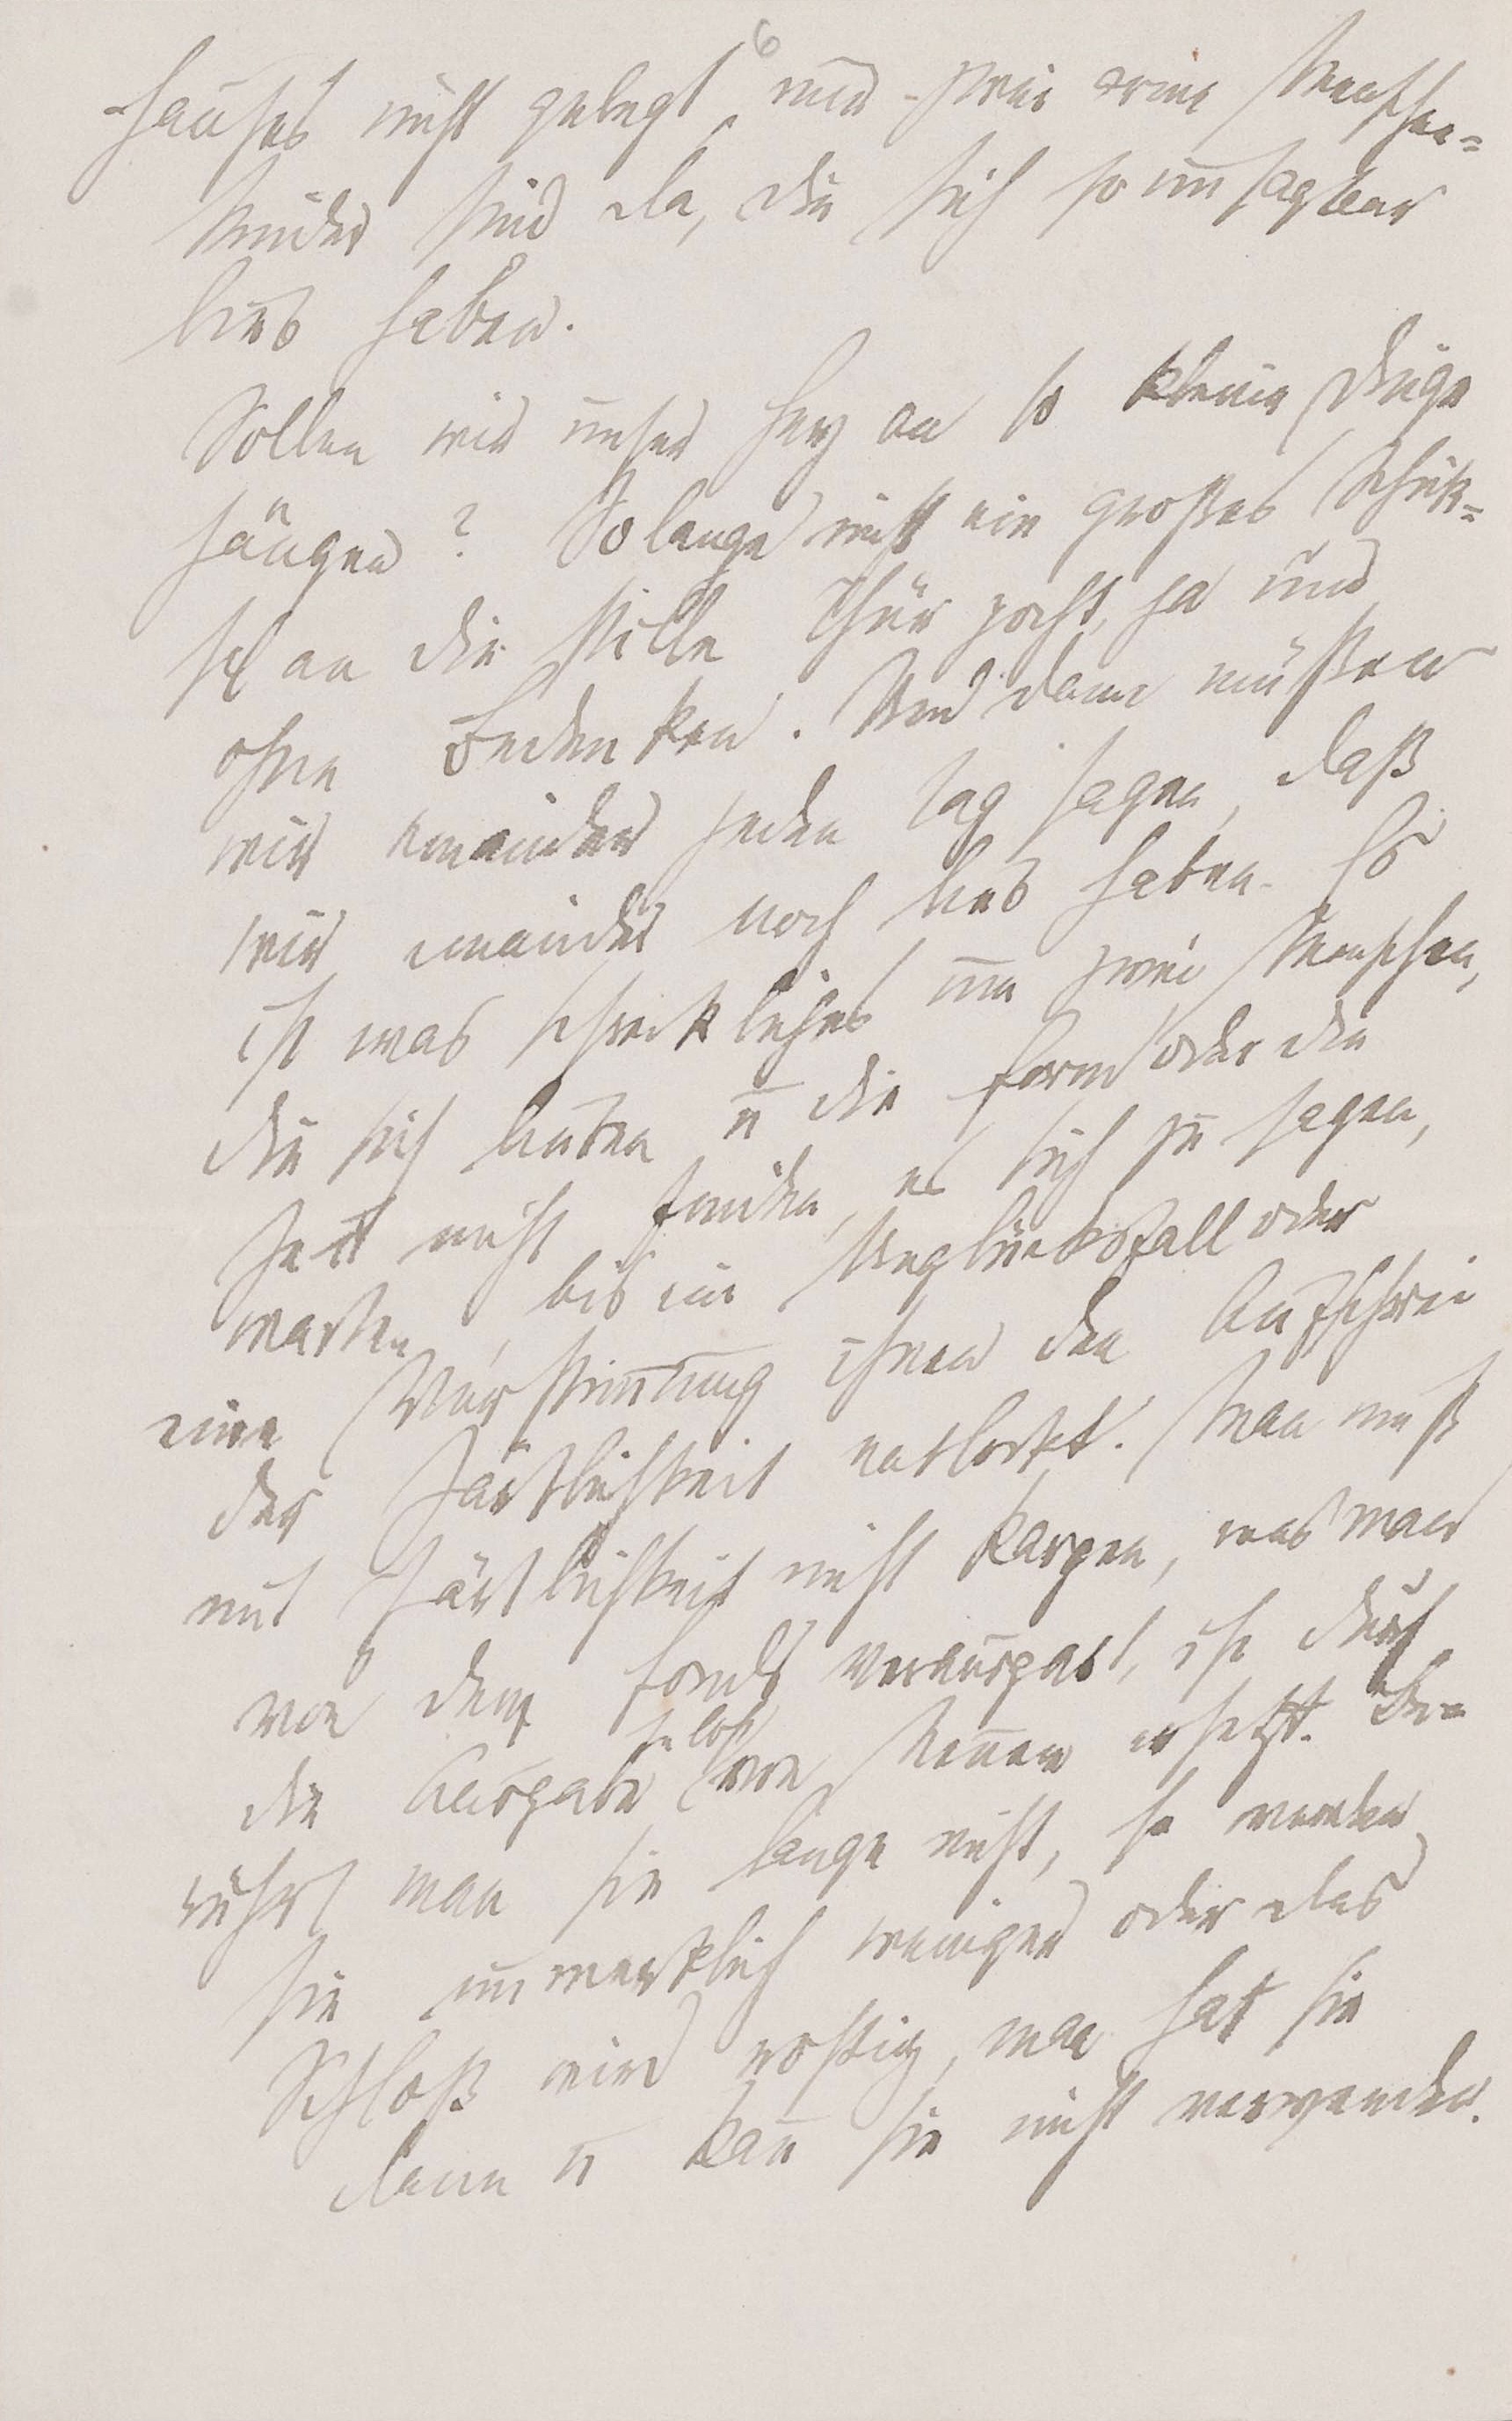 6
hauses nicht gelegt, und zwei arme Menschen=
kinder sind da, die sich so unsagbar
lieb haben.
Sollen wir unser Herz an so kleine Dinge
hängen? So lange nicht ein großes Schick=
sal an die stille Thür pocht, ja und
ohne Bedenken. Und dann müßen
wir einander jeden Tag sagen, daß
wir einander noch lieb haben. Es
ist was schreckliches um zwei Menschen,
die sich lieben u die Form oder die
Zeit nicht finden, es sich zu sagen,
warten, bis ein Unglücksfall oder
eine Verstimmung ihnen den Aufschrei
der Zärtlichkeit entlockt. Man muß
mit Zärtlichkeit nicht kargen, was man
von dem Fonds verausgabt, ist durch
selbst
die Ausgabe von Neuem ersetzt. Be=
rührt man sie lange nicht, so werden
sie unmerklich weniger oder das
Schloß wird rostig, man hat sie
dann u kann sie nicht verwenden.